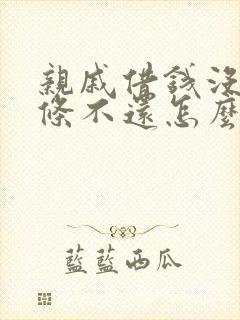 親戚借錢沒
條不還怎麼
藍藍西瓜